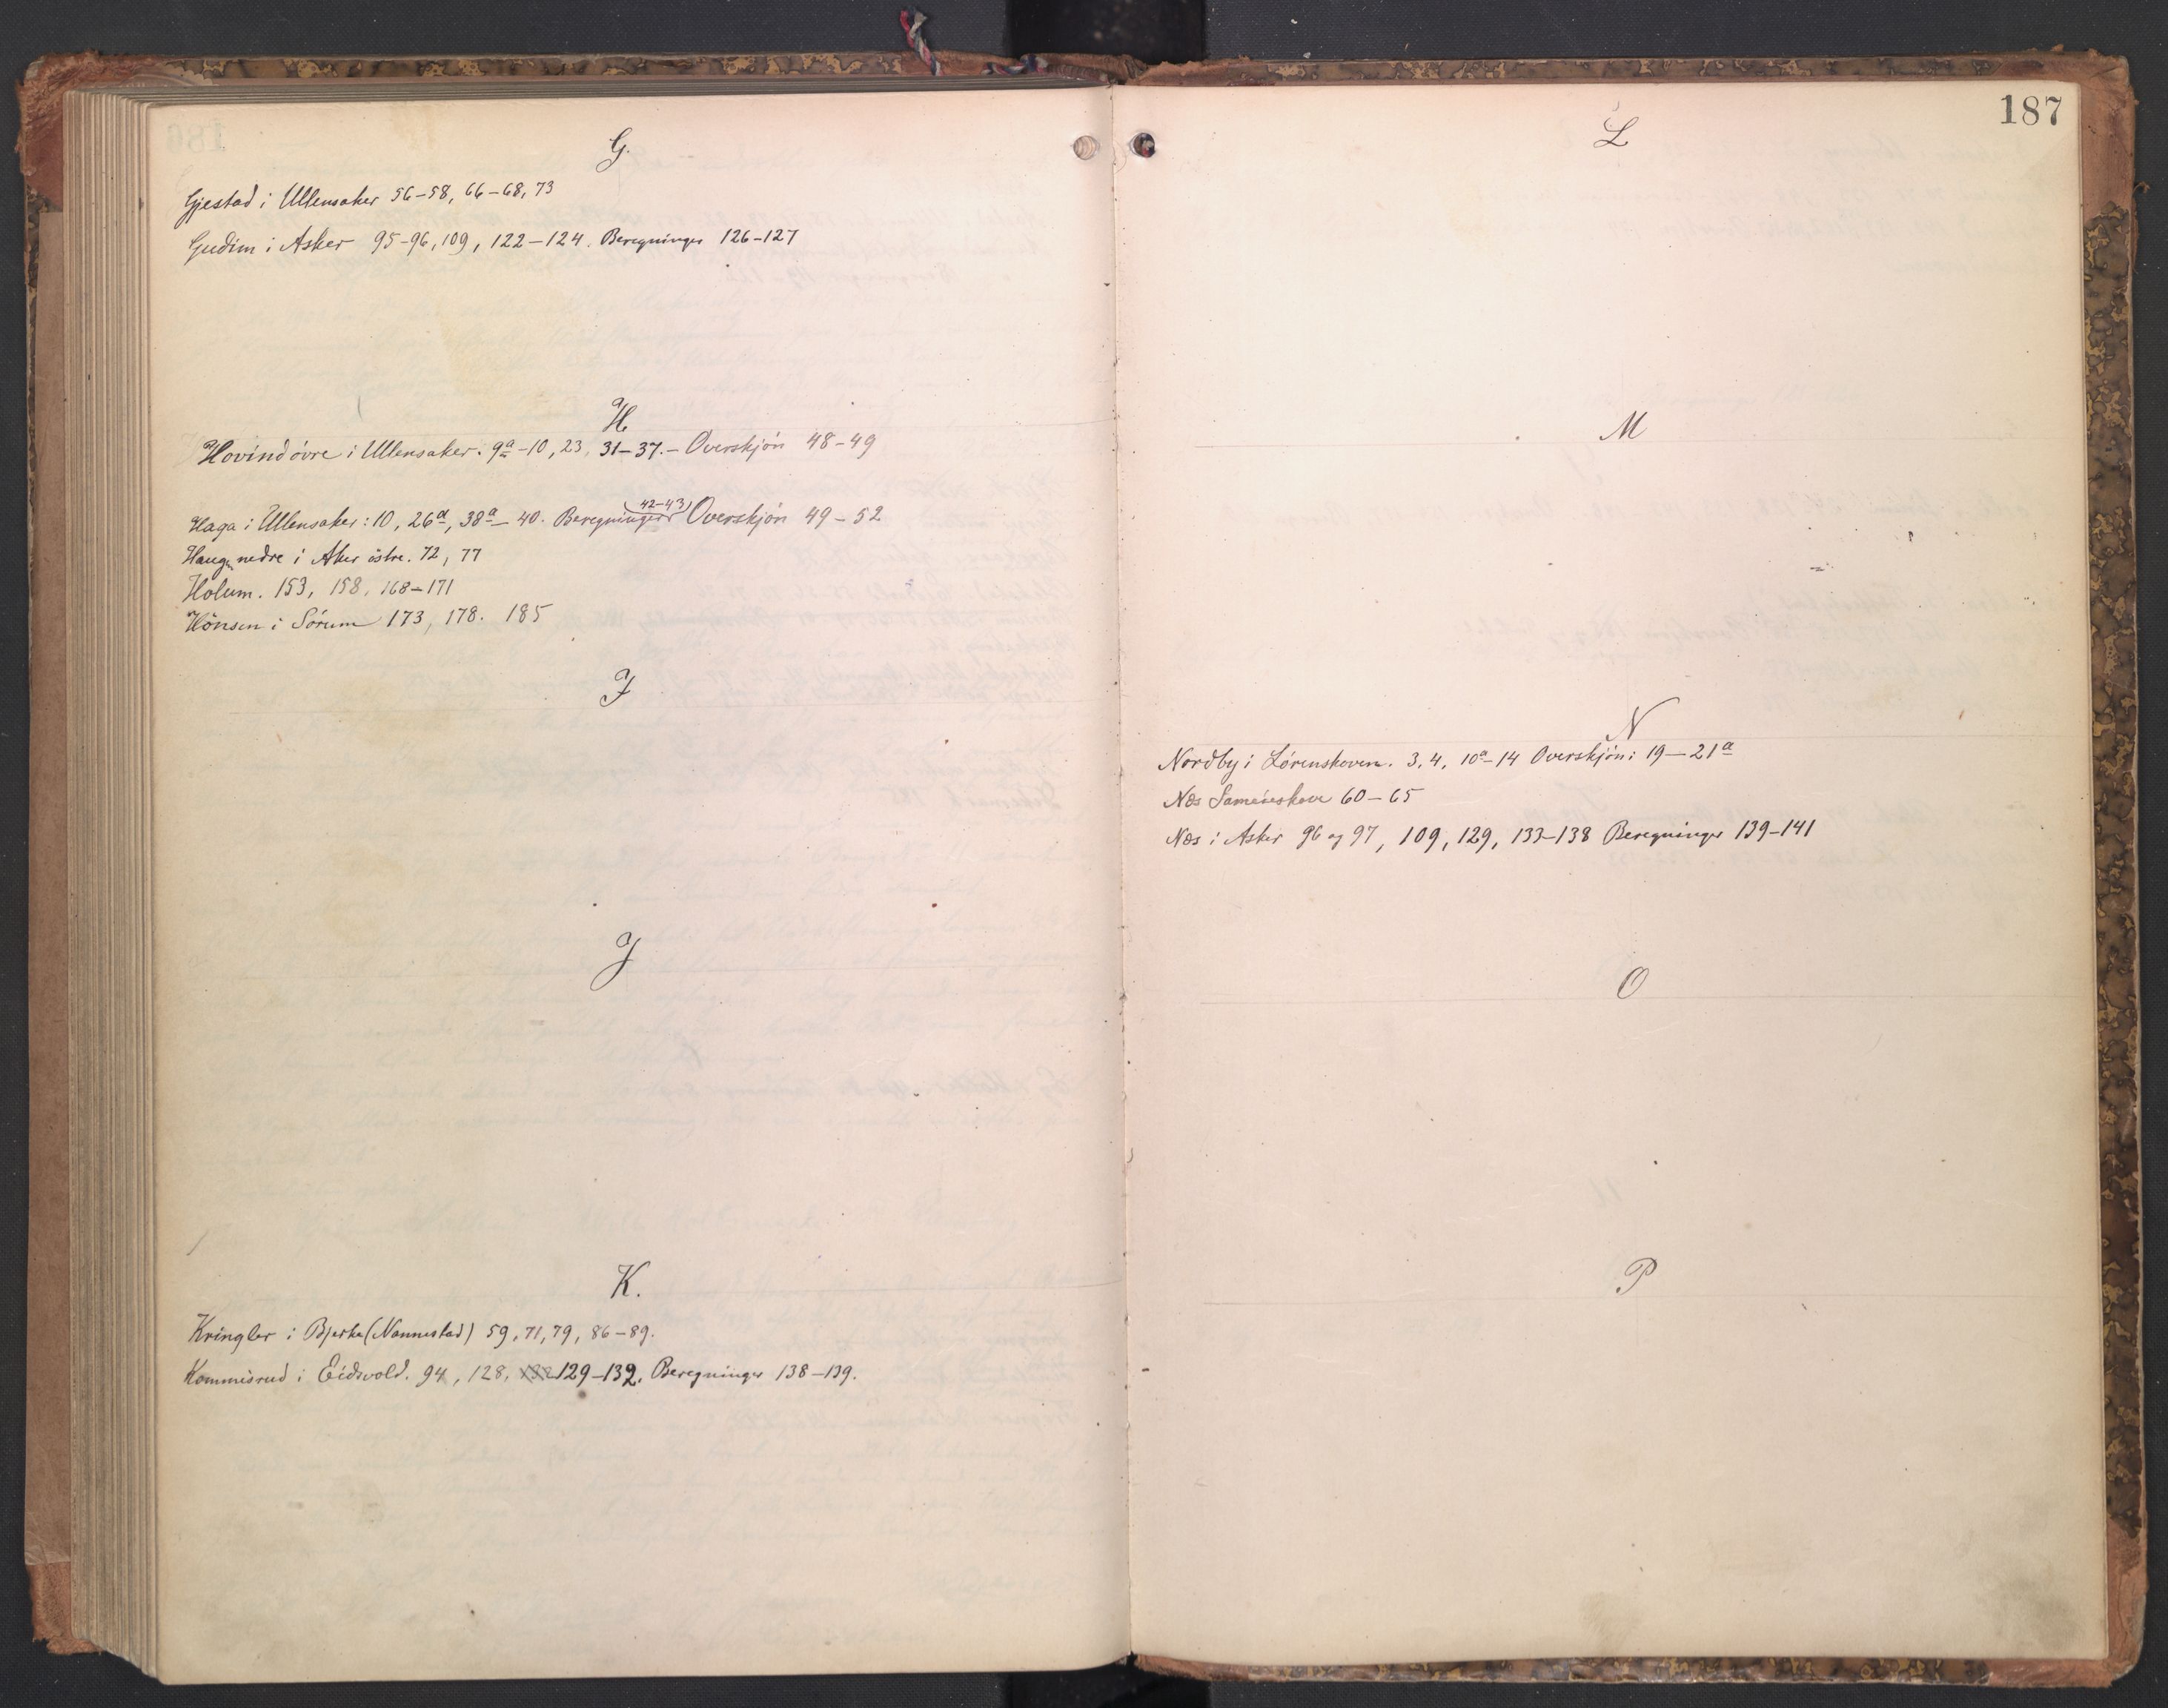 G.
Gjestad i Ullensaker 56–58, 66–68, 73
Gudim i Asker 95–96, 109, 122–124. Beregninger 126–127
H.
Hovind övre i Ullensaker. 9a–10, 23, 31–37. – Overskjön 48–49
Haga i Ullensaker: 10, 26a, 38a – 40. Beregninger (42–43) Overskjön 49–52
Haug nedre i Aker östre. 72, 77
Holum. 153, 158, 168–171
Hönsen i Sörum 173, 178. 185
I
J
K.
Kringler i Bjerke (Nannestad) 59, 71, 79, 86–89.
Kommisrud i Eidsvold. 94, 128, 129–132. Beregninger 138–139.
187
L
M
N
Nordby i Lörenskoven. 3, 4, 10a–14 Overskjön: 19–21a
Næs Sameieskove 60–65
Næs i Asker 96 og 97, 109, 129, 133–138 Beregninger 139–141
O
P